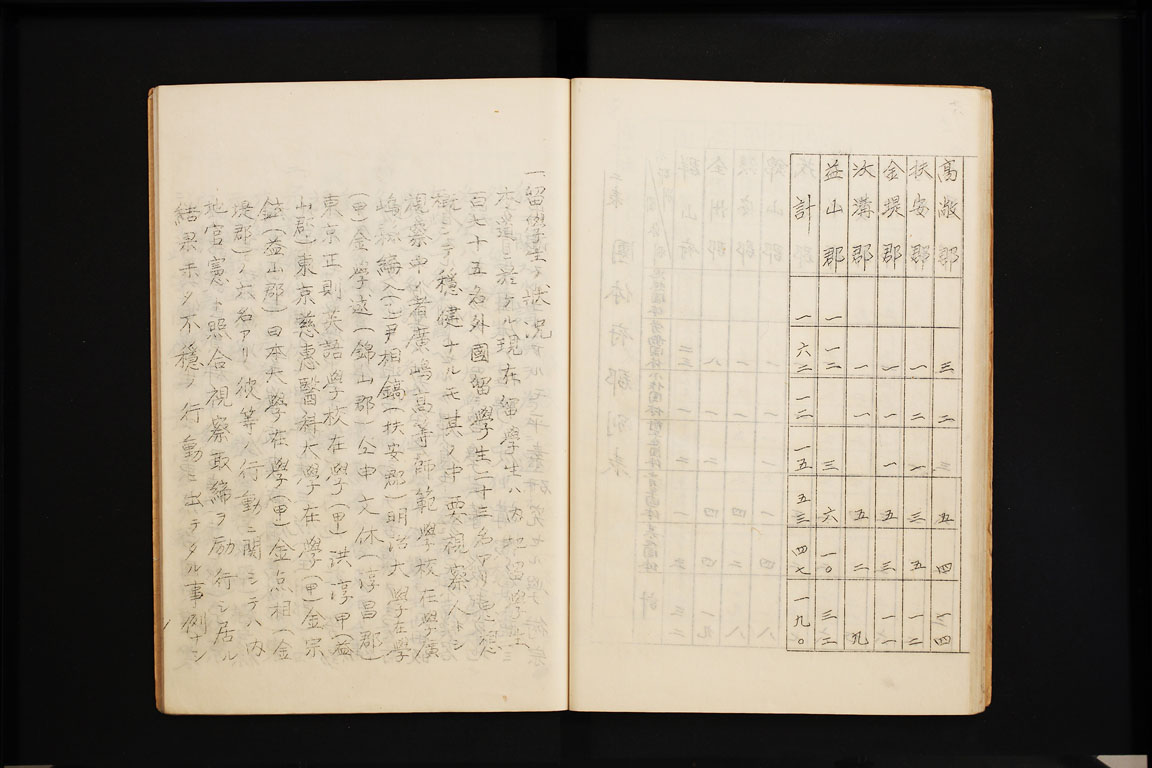 高敞郡 三 二 三 五 四 一四
扶安郡 一 二 一 三 五 一二
金堤郡 一 一 五 三 一一
沃溝郡 一 一 五 二 九
益山郡 一 一二 三 六 一〇 三二
計 一 六二 一三 一五 五三 四七 一九〇
一留學生ノ狀况
本道ニ於ケル現在留學生ハ内地留學生三
百七十五名外國留學生二十三名アリ思想
概シテ穩健ナルモ其ノ中要視察人トシ
視察中ノ者廣嶋高等師範學校在學廣
嶋縣編入(乙)尹相鎬(扶安郡)明治大學在學
(甲)金學遠(錦山郡)仝申文休(淳昌郡)
東京正則英語學校在學(甲)洪淳甲(益
山郡)東京慈惠醫科大學在學(甲)金宗
鉉(益山郡)日本大學在學(甲)金点相(金
堤郡)ノ六名アリ彼等ノ行動ニ關シテハ内
地官憲ト照合視察取締ヲ励行シ居ル
結果未タ不穩ノ行動ニ出テタル事例ナシ